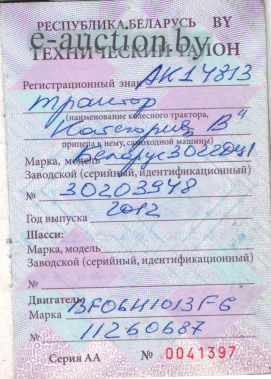 РЕСПУБЛИКА БЕЛАРУСЬ BY
e-auction.by
ТЕХНИЧЕСКИЙ ТАЛОН
Регистрационный знак АК14813
трактор
(наименование колесного трактора,
Категория "В"
прицепа к нему, самоходной машины)
Марка, модель Беларус 3022ДЦ1
Заводской (серийный, идентификационный)
№ 30203948
Год выпуска 2012
Шасси:
Марка, модель
Заводской (серийный, идентификационный)
№
Двигатель:
Марка BF06M1013FC
№ 11260687
Серия АА № 0041397